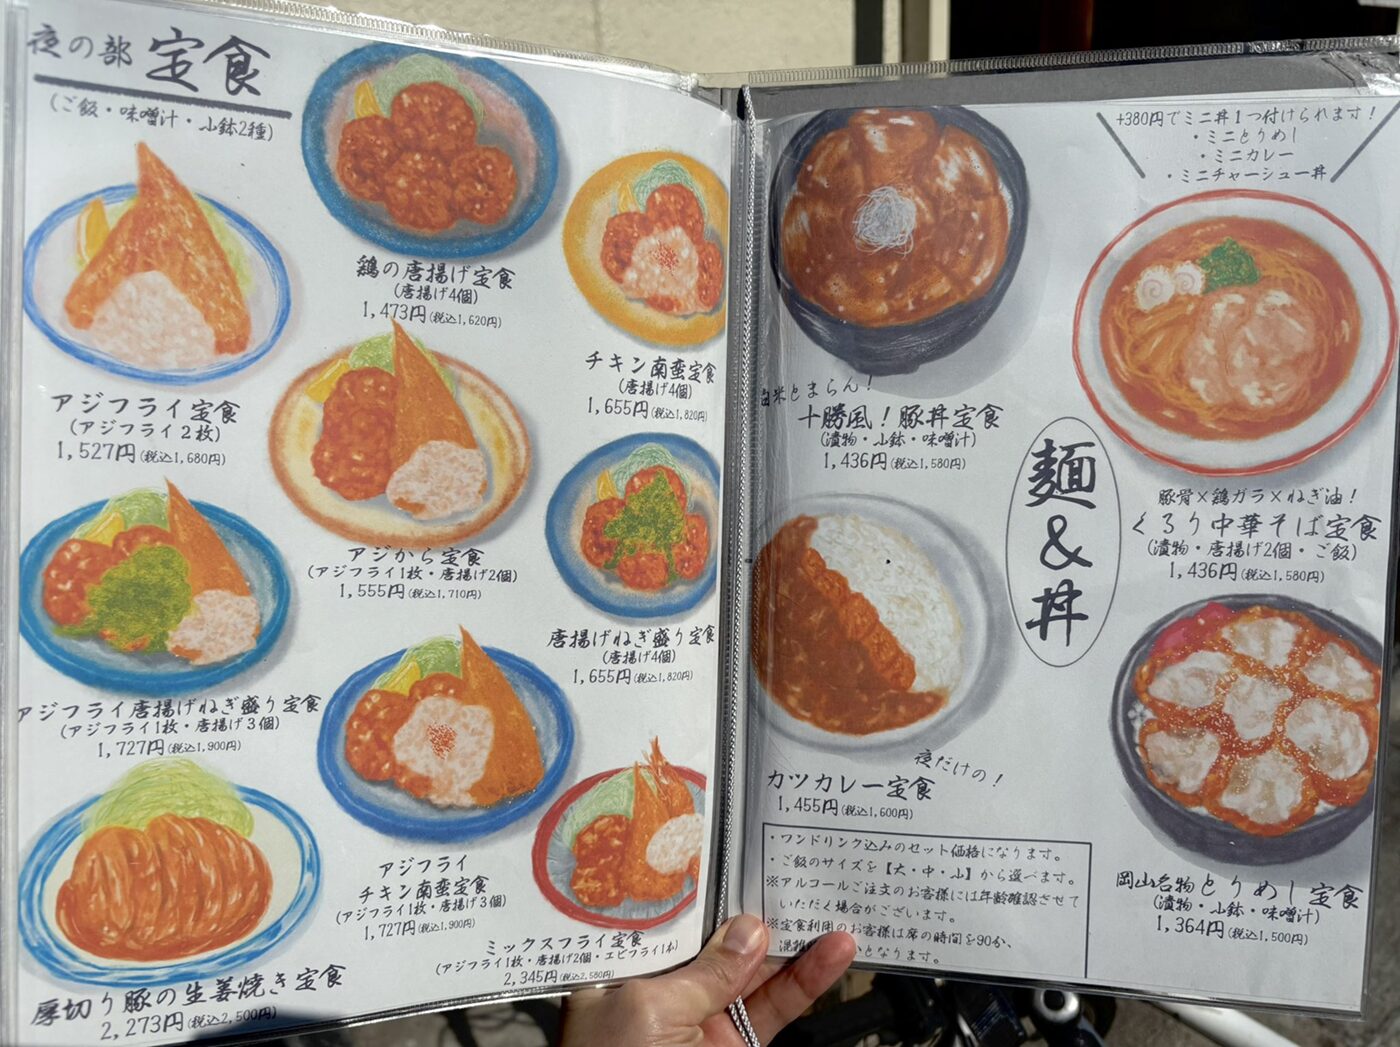 夜の部 定食
(ご飯・味噌汁・小鉢2種)
鶏の唐揚げ定食
(唐揚げ4個)
1,473円(税込1,620円)
チキン南蛮定食
(唐揚げ4個)
1,655円(税込1,820円)
アジフライ定食
(アジフライ2枚)
1,527円(税込1,680円)
アジから定食
(アジフライ1枚・唐揚げ2個)
1,555円(税込1,710円)
唐揚げねぎ盛り定食
(唐揚げ4個)
1,655円(税込1,820円)
アジフライ唐揚げねぎ盛り定食
(アジフライ1枚・唐揚げ3個)
1,727円(税込1,900円)
アジフライ
チキン南蛮定食
(アジフライ1枚・唐揚げ3個)
1,727円(税込1,900円)
ミックスフライ定食
(アジフライ1枚・唐揚げ2個・エビフライ1本)
2,345円(税込2,580円)
厚切り豚の生姜焼き定食
2,273円(税込2,500円)
+380円でミニ丼1つ付けられます!
・ミニとりめし
・ミニカレー
・ミニチャーシュー丼
白米とまらん!
十勝風!豚丼定食
(漬物・小鉢・味噌汁)
1,436円(税込1,580円)
麺&丼
豚骨×鶏ガラ×ねぎ油!
くろり中華そば定食
(漬物・唐揚げ2個・ご飯)
1,436円(税込1,580円)
夜だけの!
カツカレー定食
1,455円(税込1,600円)
岡山名物とりめし定食
(漬物・小鉢・味噌汁)
1,364円(税込1,500円)
・ワンドリンク込みのセット価格になります。
・ご飯のサイズを【大・中・小】から選べます。
※アルコールご注文のお客様には年齢確認させて
いただく場合がございます。
※定食利用のお客様は席の時間を90分、
となります。